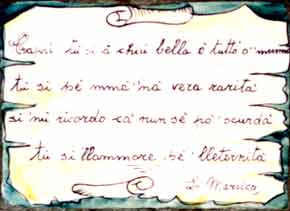 Capri tu si a chiù bella è tutt'o munno
tu si pé mmé 'na vera rarità
si nu ricordo ca nun sé pò scurdà
tu si llammore pé lleternità